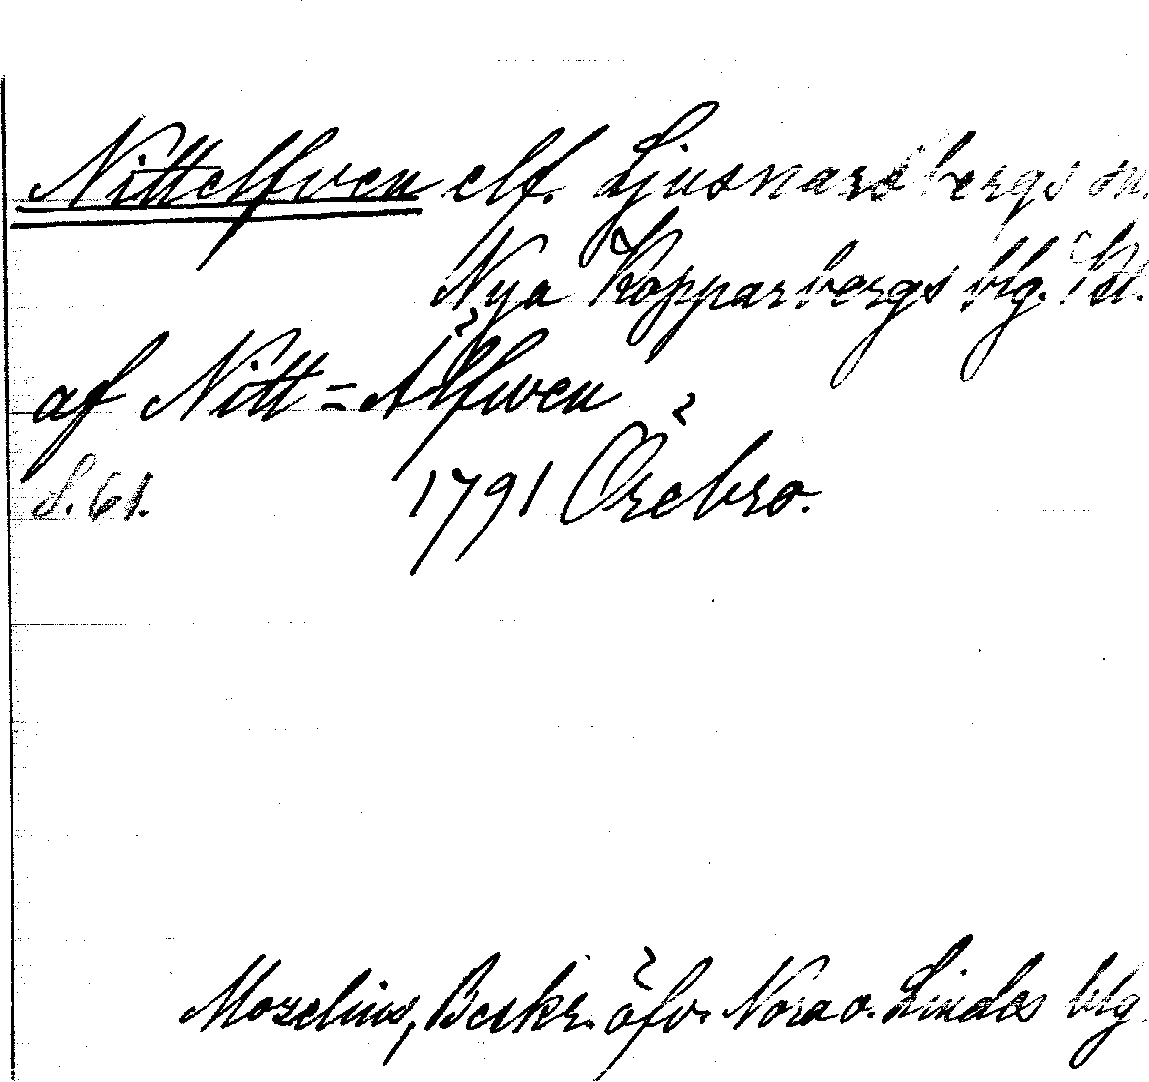 Nittelfven elf. Ljusnarsbergs sn.
Nya Kopparbergs blg.
af Nitt=Älfwen
S. 61. 1791 Örebro.
Mozelius, Beskr. öfv. Nora o. Lindes blg